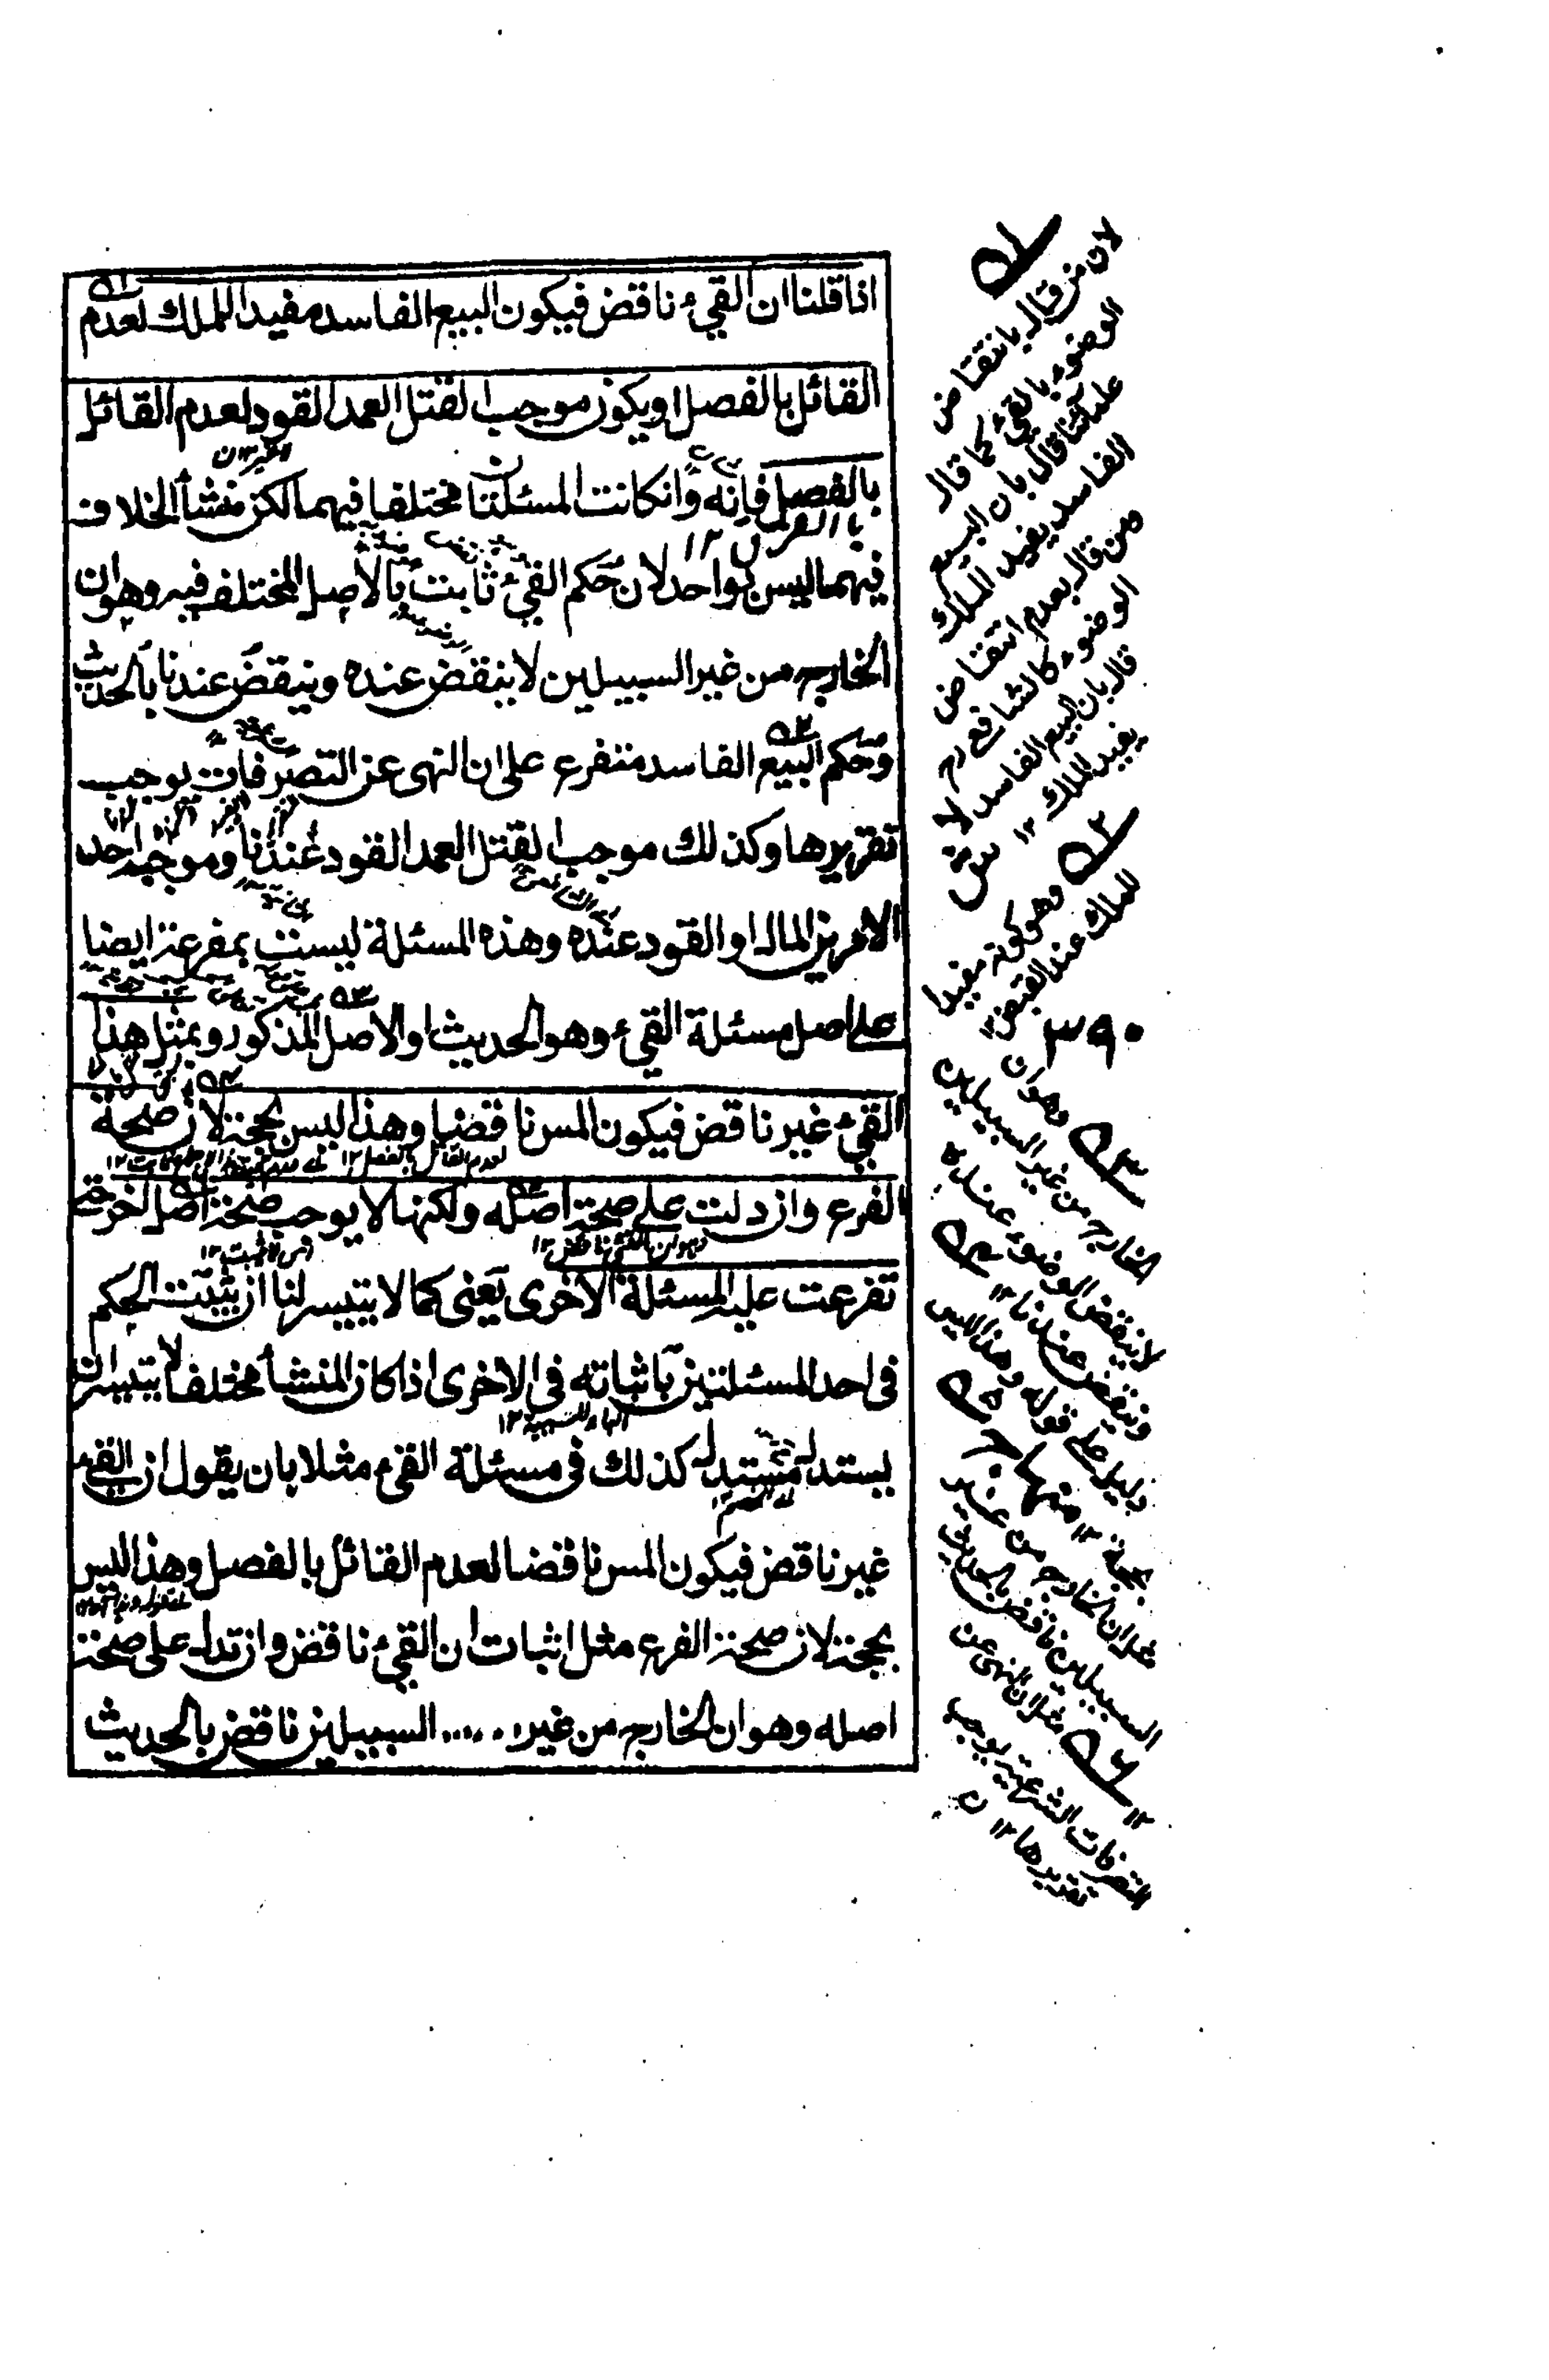 اذا قلنا ان القيء ناقض فيكون البيع الفاسد مفيدا للملك لعدم
القائل بالفصل او يكون موجب القتل العمد القود لعدم القائل
بالفصل فانه وانكانت المسئلتان مختلفا فيهما لكن منشأ الخلاف
فيهما ليس بواحد لان حكم القيء ثابت بالاصل المختلف فيه وهو ان
الخارج من غير السبيلين لا ينقض عنده وينقض عندنا بالحديث
وحكم البيع الفاسد متفرع على ان النهى عن التصرفات يوجب
تقريرها وكذلك موجب القتل العمد القود عندنا وموجبه احد
الامرين المال او القود عنده وهذه المسئلة ليست بمفرعة ايضا
على اصل مسئلة القيء وهو الحديث او الاصل المذكور وبمثل هذا
القيء غير ناقض فيكون المس ناقضا وهذا ليس بحجة لان صحة
الفرع وان دلت على صحة اصله ولكنها لا يوجب صحة اصل اخر حتى
تفرعت عليه المسئلة الاخرى يعنى كما لا يتيسر لنا ان يثبت الحكم
فى احد المسئلتين باثباته فى الاخرى اذا كان المنشأ مختلفا لا يتيسر ان
يستدل مستدل كذلك فى مسئلة القيء مثلا بان يقول ان القيء
غير ناقض فيكون المس ناقضا لعدم القائل بالفصل وهذا ليس
بحجة لان صحة الفرع مثل اثبات ان القيء ناقض وان تدل على صحة
اصله وهو ان الخارج من غير ..... السبيلين ناقض بالحديث
لان من قال بانتقاض
الوضوء بالقيء كما قال
علمائنا قال بان البيع
الفاسد يفيد الملك
من قال بعدم انتقاض
الوضوء كالشافعي
قال بان البيع الفاسد لا
يفيد الملك ١٢
وهو كونه مفيدا
للملك عند القبض
٣٩٠
وهو ان
الخارج من غير السبيلين
لا ينقض الوضوء عنده
وينقض عندنا ١٢
دليل على قوله وهذا ليس
بحجة ١٢
على ان الخارج من غير
السبيلين ناقض
مثل ان النهى عن
التصرفات الشرعية يوجب
تقريرها ١٢